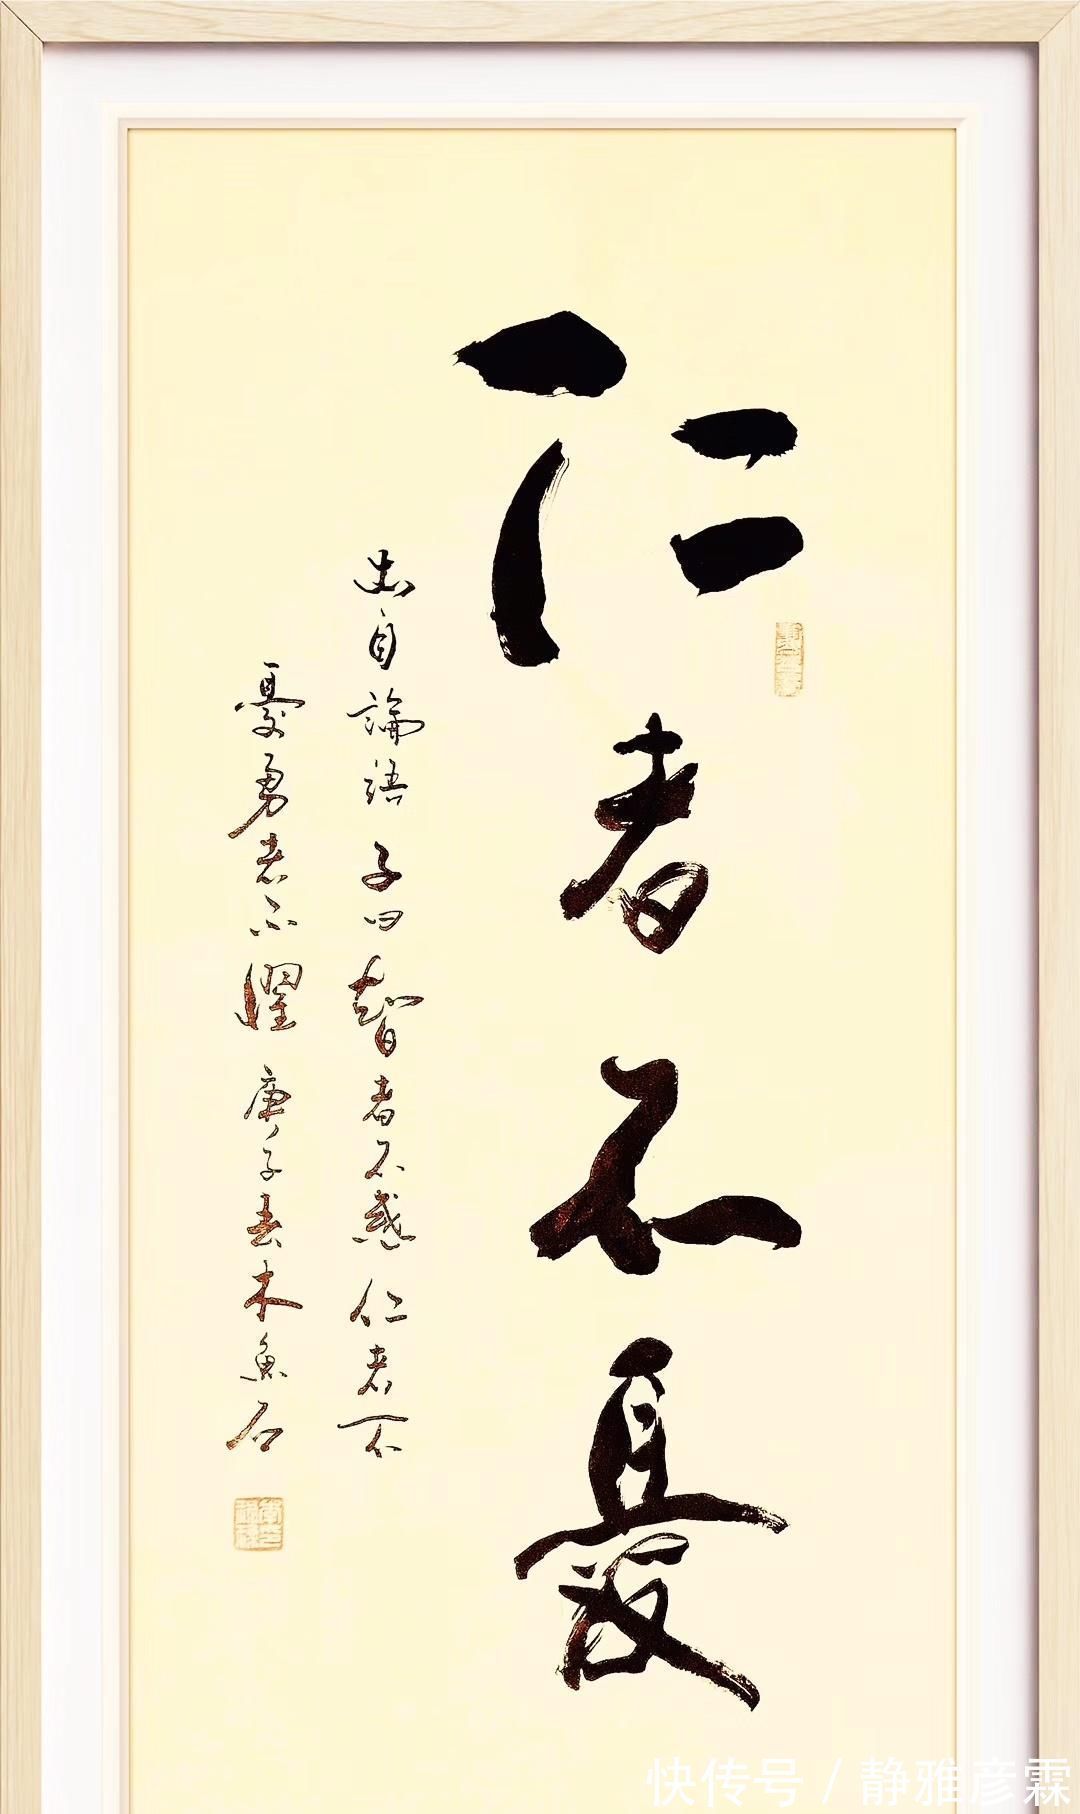 仁者不憂
出自論語子曰智者不惑仁者不
憂勇者不懼庚子去木魚石
快传号/静雅彦霖